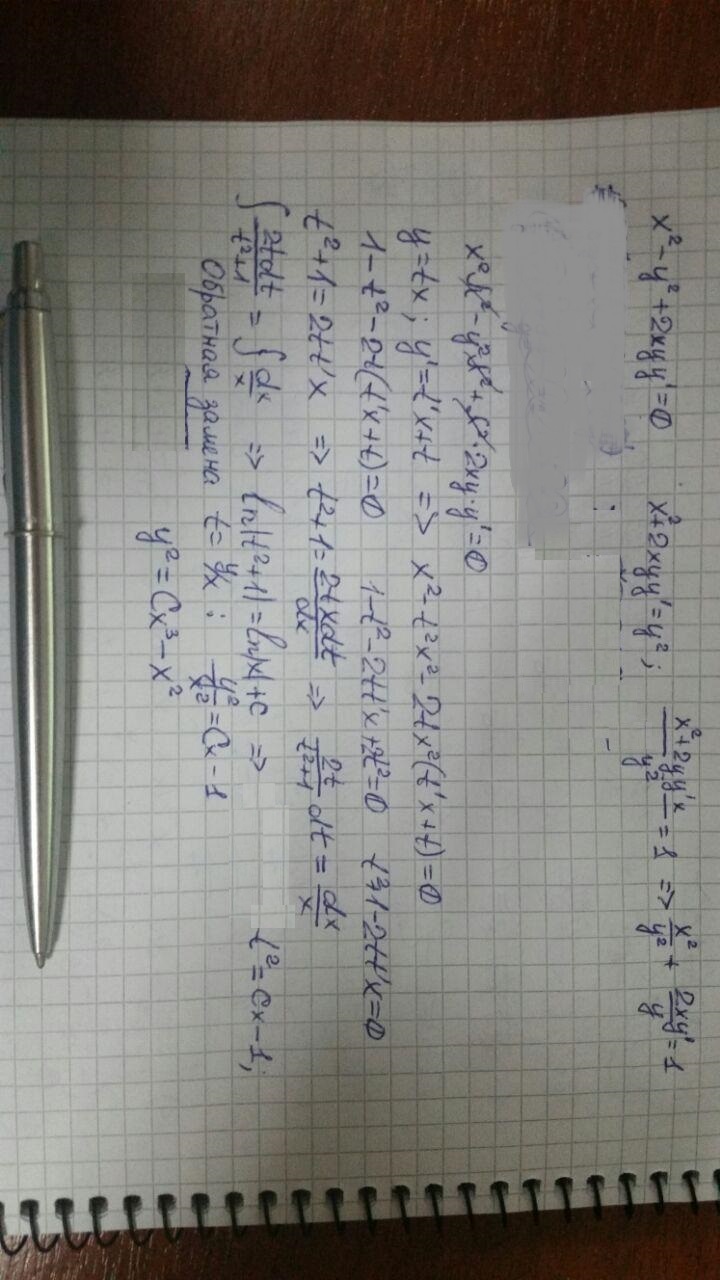 x² - y² + 2xyy' = 0    x² + 2xyy' = y²;    (x² + 2yy'x)/y² = 1 => x²/y² + 2xy'/y = 1
x²k² - y²k² + k²·2xy·y' = 0
y = tx; y' = t'x + t => x² - t²x² - 2tx²(t'x + t) = 0
1 - t² - 2t(t'x + t) = 0    1 - t² - 2tt'x + 2t² = 0    t² + 1 - 2tt'x = 0
t² + 1 = 2tt'x => t² + 1 = 2txdt/dx => 2t/(t²+1) dt = dx/x
∫ 2tdt/(t²+1) = ∫ dx/x => ln|t²+1| = ln|x| + C => t² = Cx - 1;
Обратная замена t = y/x; y²/x² = Cx - 1
y² = Cx³ - x²